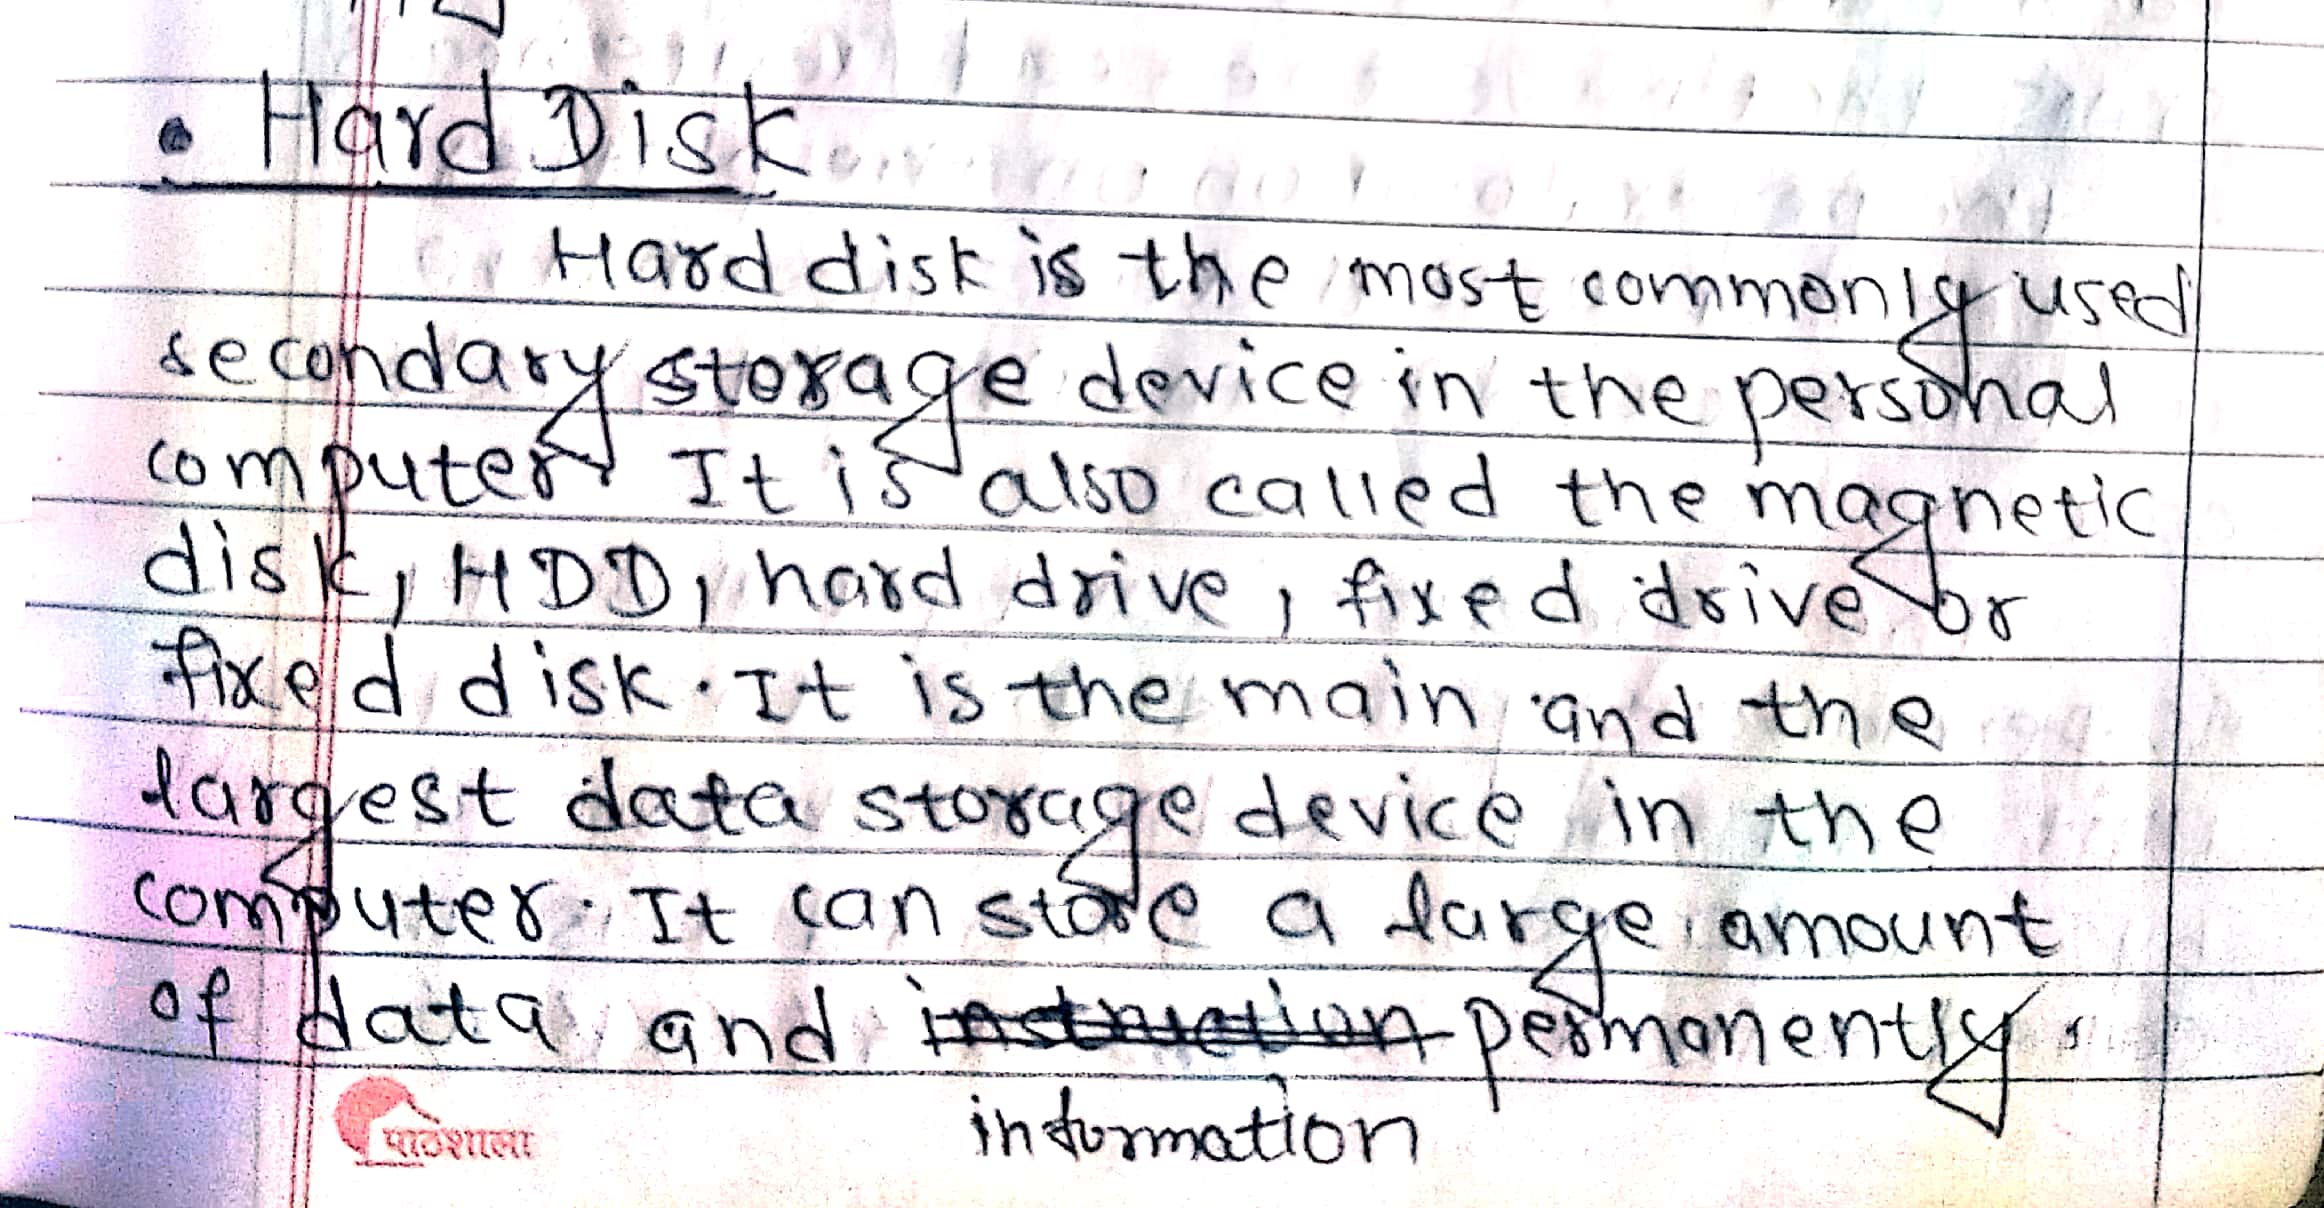 • Hard Disk
Hard disk is the most commonly used
secondary storage device in the personal
computer It is also called the magnetic
disk, HDD, hard drive, fixed drive or
fixed disk. It is the main and the
largest data storage device in the
computer. It can store a large amount
of data and instruction permanently.
information
पाठशाला